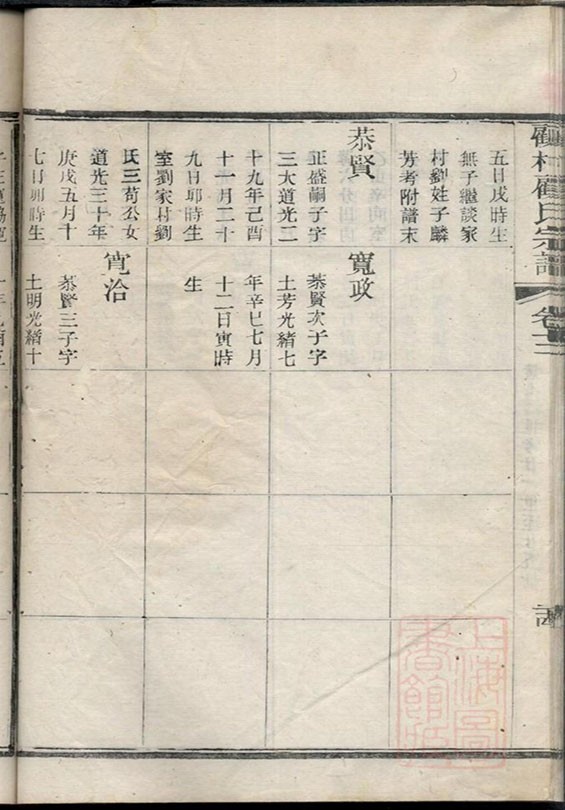 顧氏宗譜
卷十三
五日戌時生
無子繼談家
村劉姓子麟
芳考附譜末
恭賢
正盛嗣子字
三大道光二
十九年己酉
十一月二十
九日卯時生
室劉家村劉
氏三苟公女
道光三十年
庚戌五月十
七日卯時生
寬政
恭賢次子字
士芳光緒七
年辛巳七月
十二日寅時
生
寬洽
恭賢三子字
士明光緒十
上海圖
書館藏